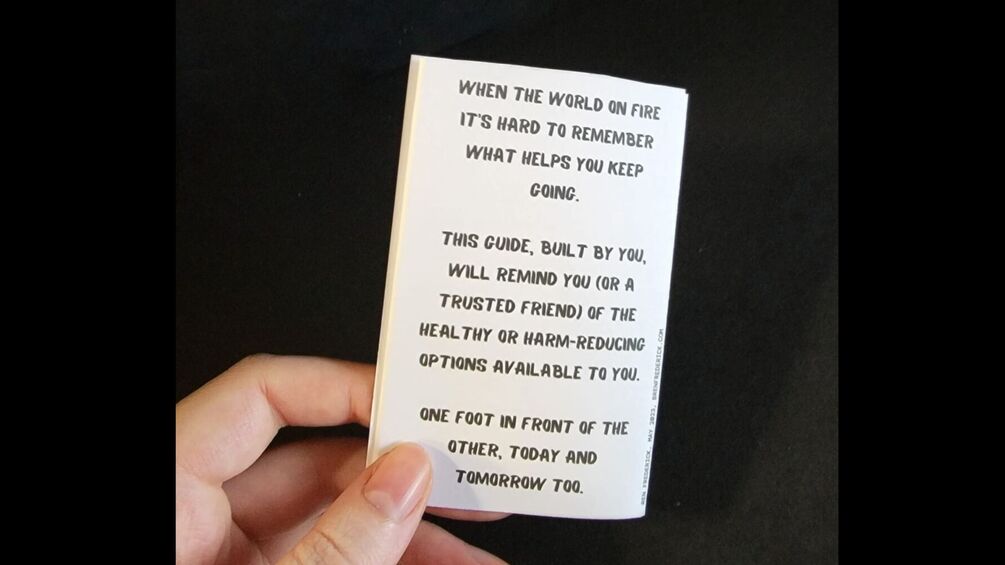 WHEN THE WORLD ON FIRE
IT'S HARD TO REMEMBER
WHAT HELPS YOU KEEP
GOING.
THIS GUIDE, BUILT BY YOU,
WILL REMIND YOU (OR A
TRUSTED FRIEND) OF THE
HEALTHY OR HARM-REDUCING
OPTIONS AVAILABLE TO YOU.
ONE FOOT IN FRONT OF THE
OTHER, TODAY AND
TOMORROW TOO.
FREDERICK, MAY 2023, BRENFREDERICK.COM